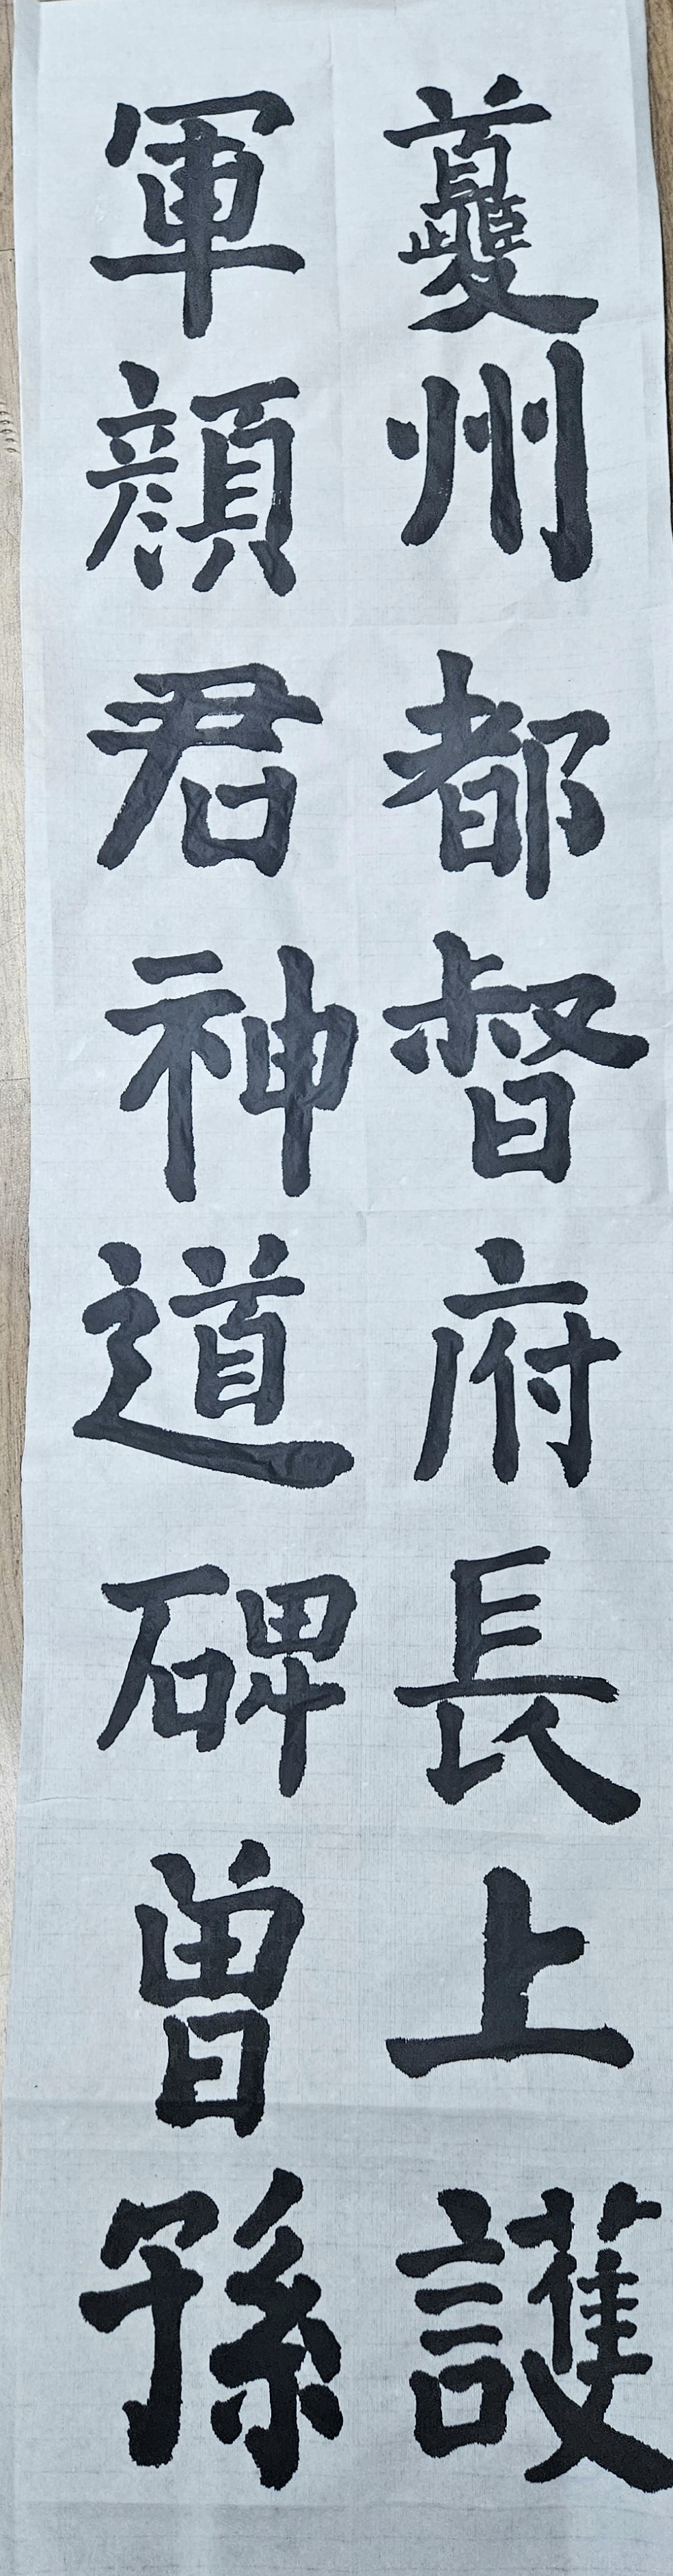 夔州都督府長上護
軍顔君神道碑曽孫